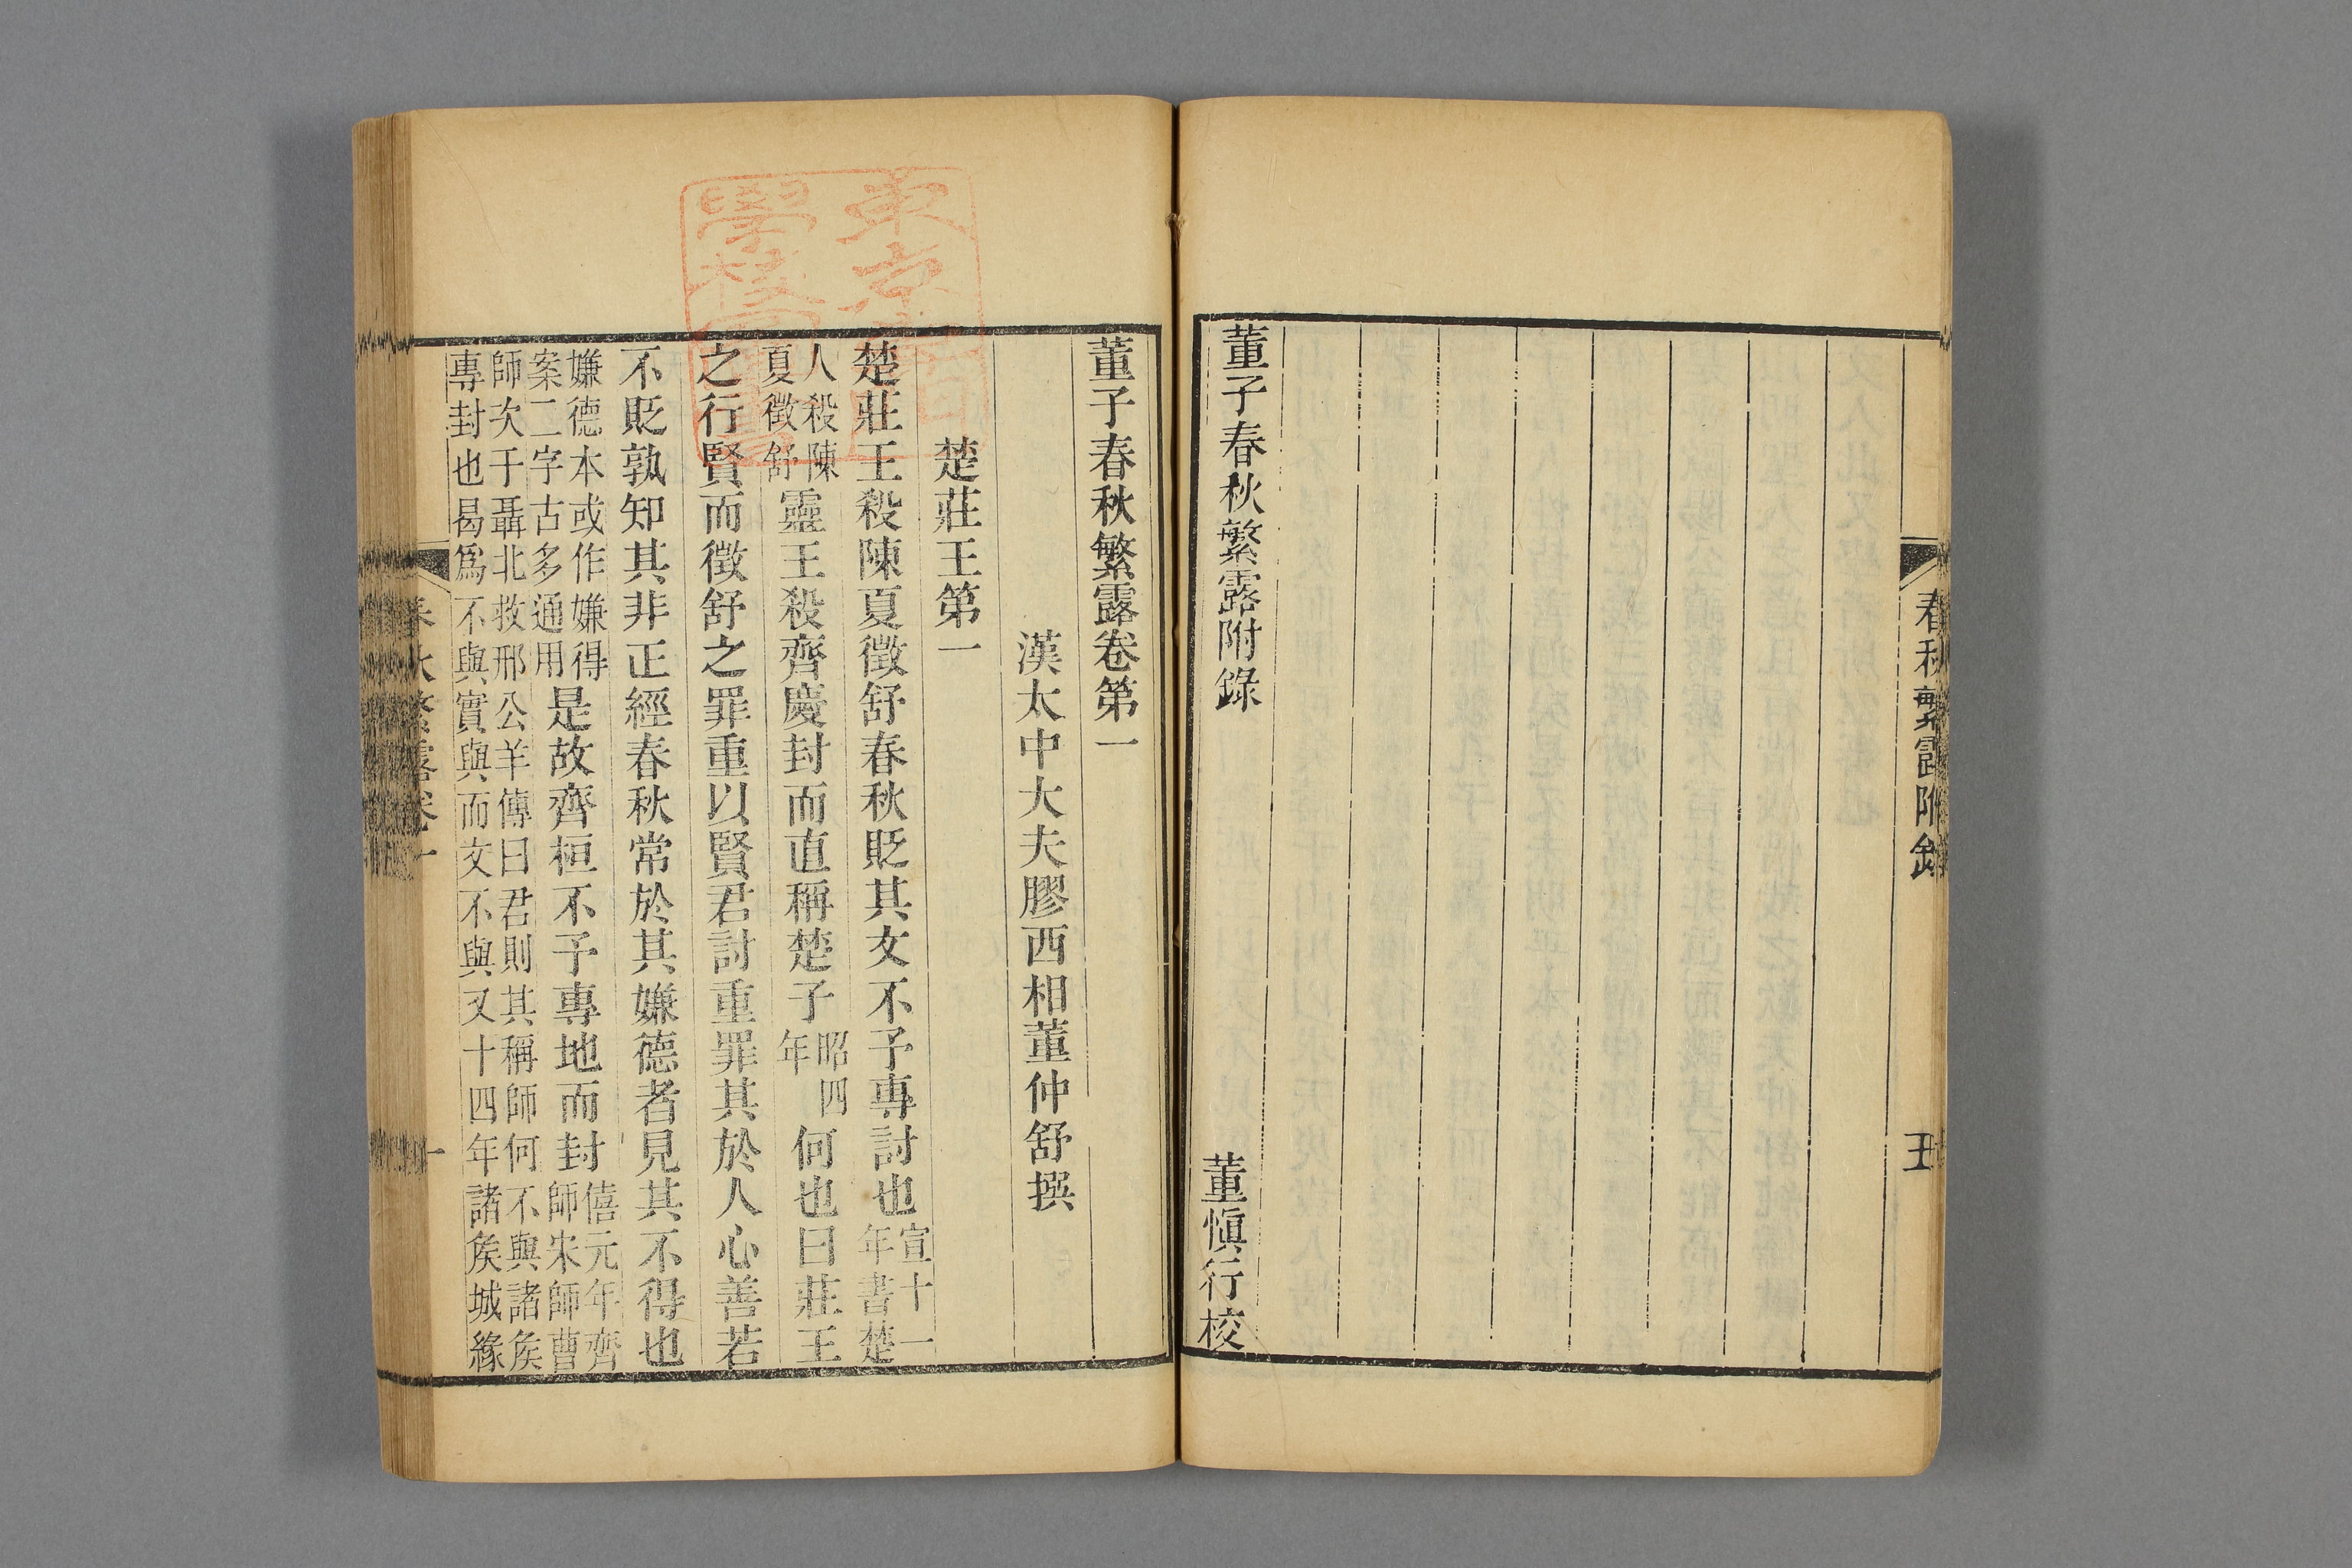 春秋繁露附錄
五
董子春秋繁露附錄
董愼行校
董子春秋繁露卷第一
漢太中大夫膠西相董仲舒撰
楚莊王第一
楚莊王殺陳夏徵舒春秋貶其文不予專討也宣十一年書楚
人殺陳夏徵舒靈王殺齊慶封而直稱楚子昭四年何也曰莊王
之行賢而徵舒之罪重以賢君討重罪其於人心善若
不貶孰知其非正經春秋常於其嫌德者見其不得也
嫌德本或作嫌得案二字古多通用是故齊桓不予專地而封僖元年齊師宋師曹
師次于聶北救邢公羊傳曰君則其稱師何不與諸矦
專封也曷爲不與實與而文不與又十四年諸矦城緣
春秋繁露卷一
一